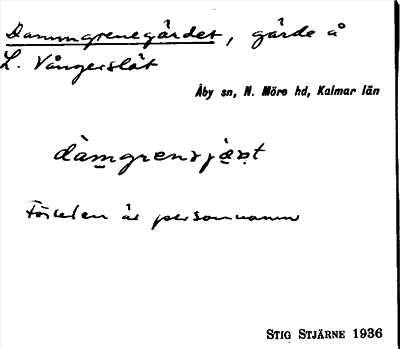 Dammgrenegärdet, gärde å
L. Vångerslät
Åby sn, N. Möre hd, Kalmar län
dàmgrensjæ̣ṭt
Förleden är personnamn
STIG STJÄRNE 1936